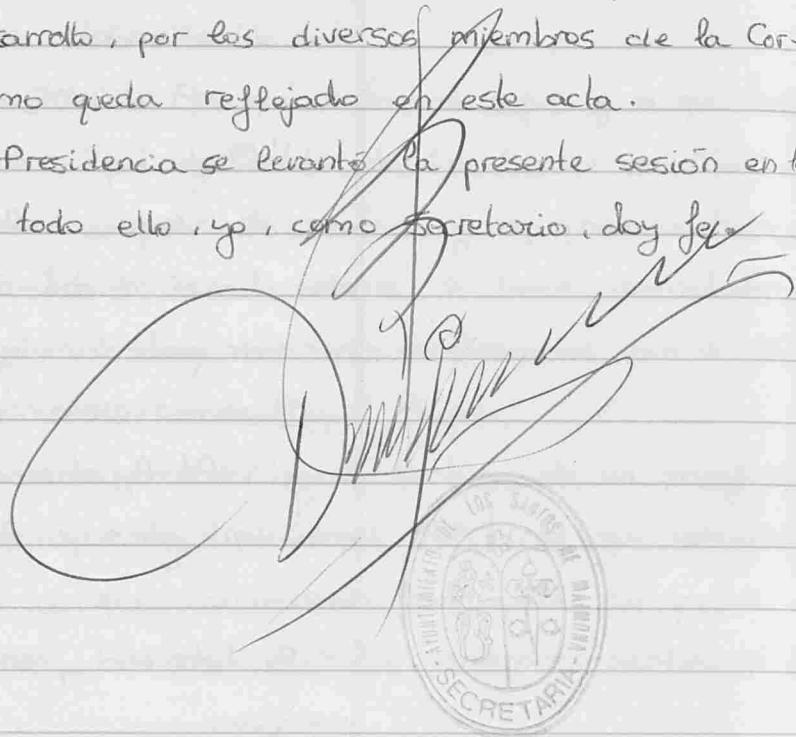 sarrollo, por los diversos miembros de la Cor-
mo queda reflejado en este acta.
Presidencia se levantó la presente sesión en l
todo ello, yo, como secretario, doy fe.
AYUNTAMIENTO DE LOS SANTOS DE MAIMONA
- SECRETARIA -